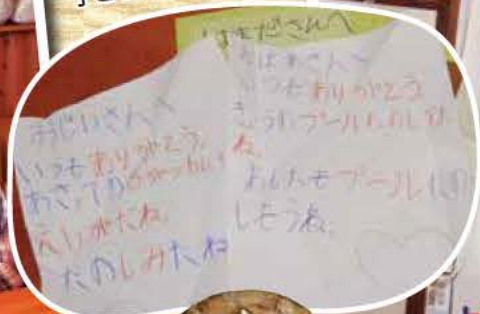 はまださんへ
おじいさんへ
いつもありがとう。
あさっての
えいがだね。
たのしみだね
おばあさんへ
いつもありがとう。
きょうはプールたのしかった
ね。
あしたもプールたの
しもうね。